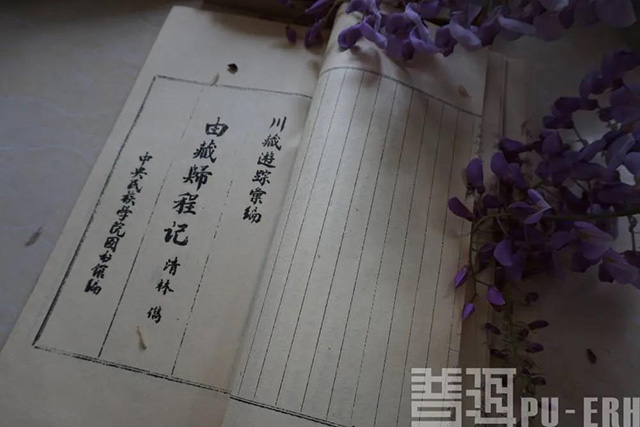 川藏遊踪彙编
由藏归程记 清 林儁
中央民族学院图书馆编
普洱
PU-ERH